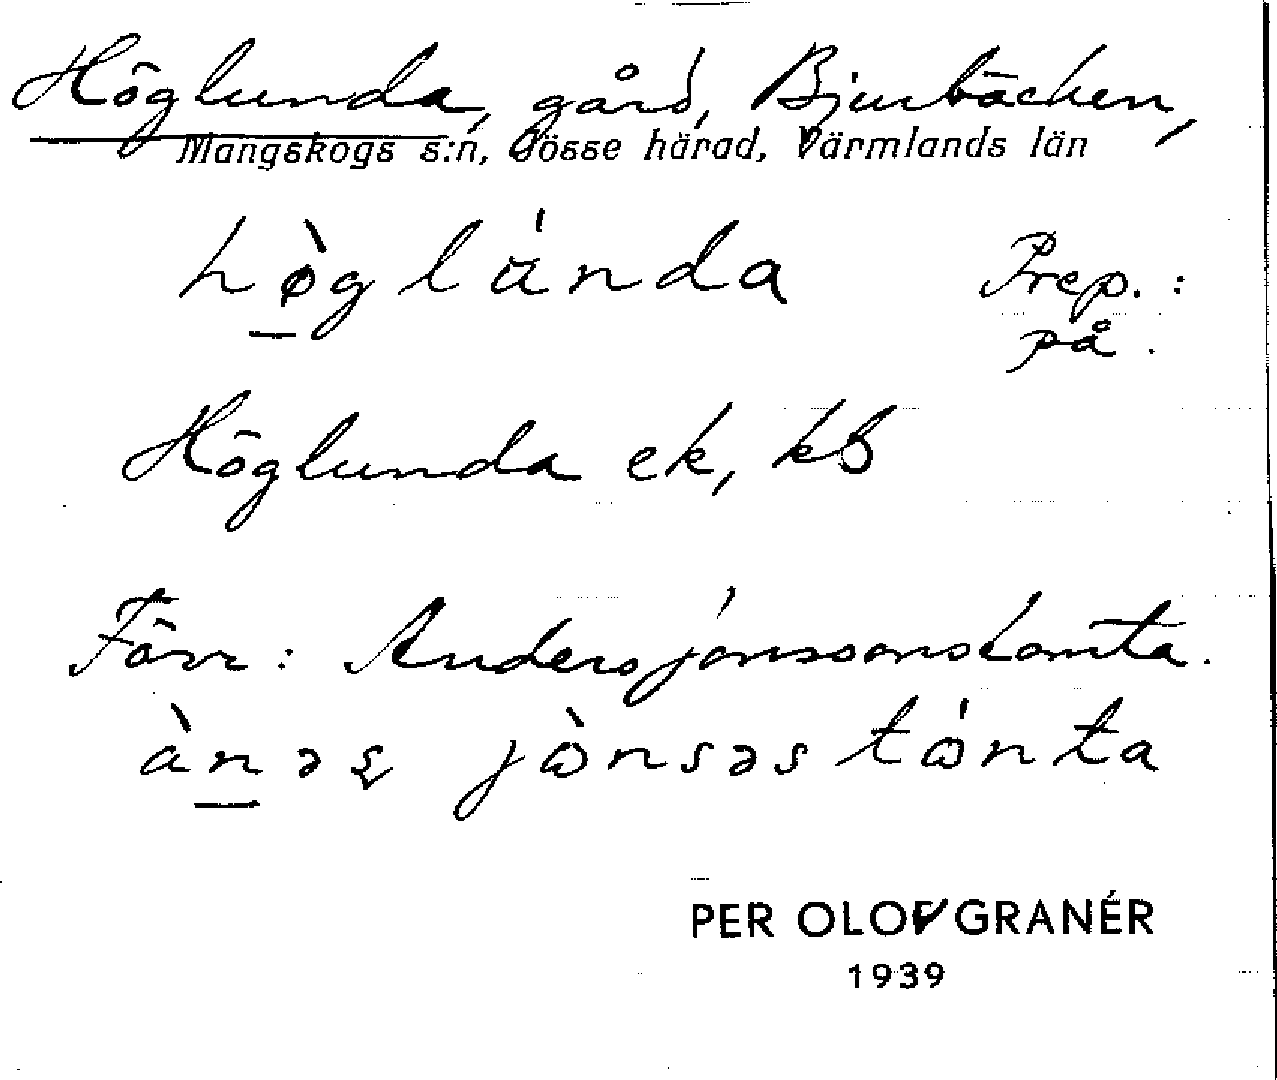 Höglunda, gård, Bjurbäcken,
Mangskogs s:n, Jösse härad, Värmlands län
hø̀glánda Prep.:
på.
Höglunda ek, kb
Förr: Andersjonssonstomta.
ànəş jɷ̀nsəstɷ́nta
PER OLOF GRANÉR
1939